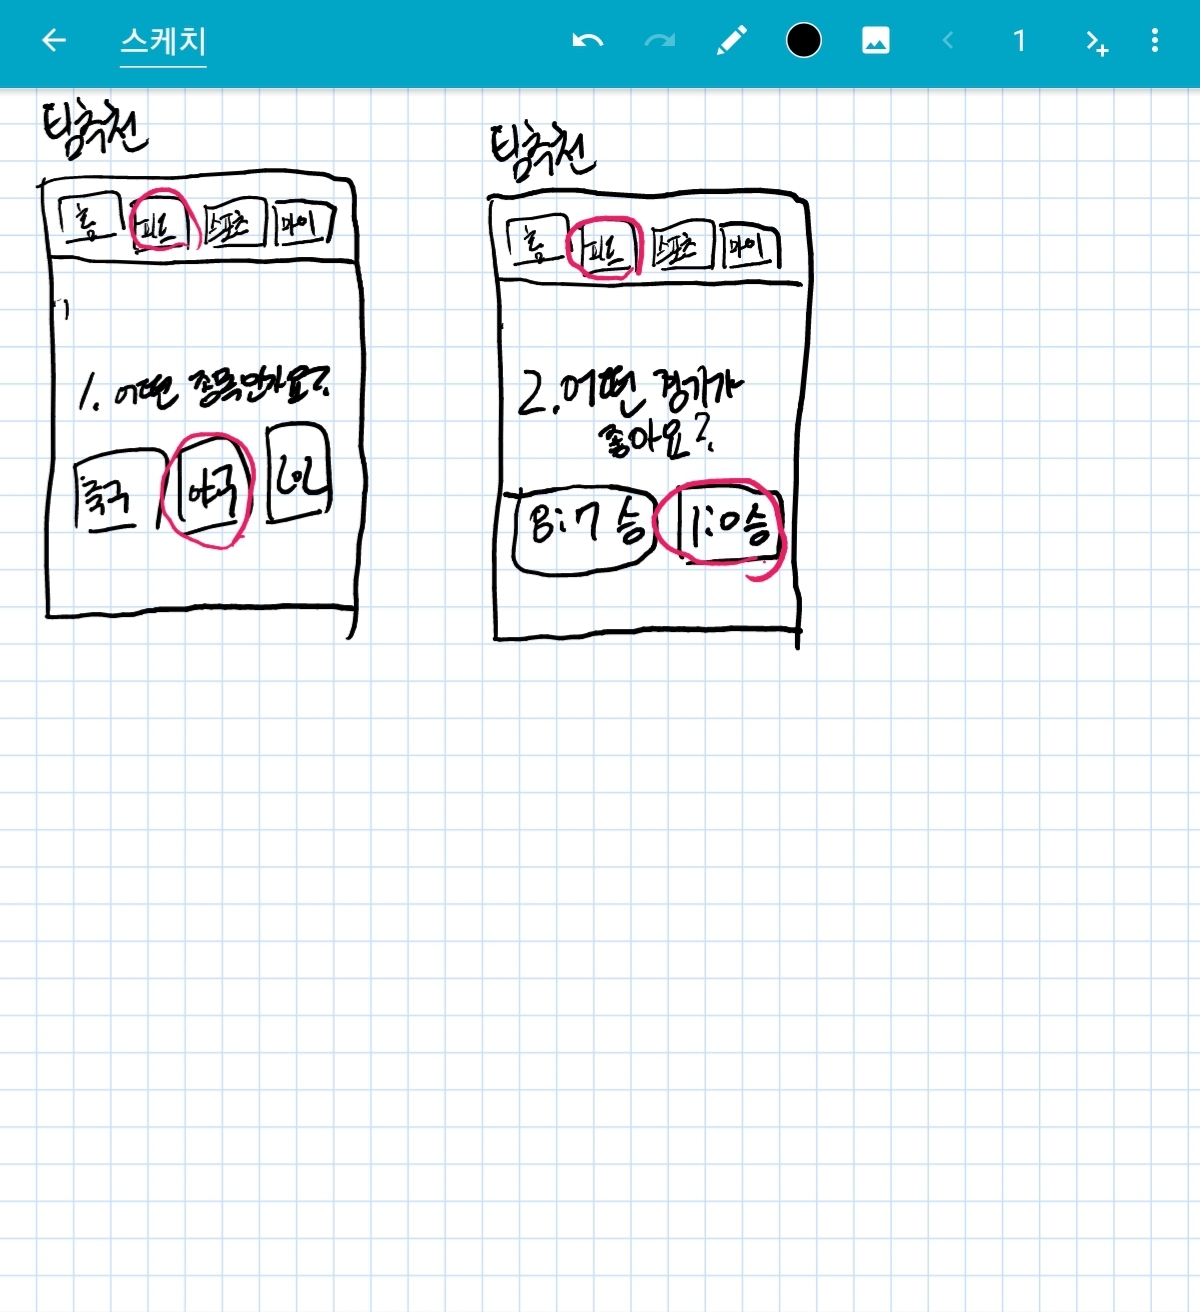 스케치
1
팀추천
홈 피드 스포츠 마이
1. 어떤 종목인가요?
축구 야구 LOL
팀추천
홈 피드 스포츠 마이
2. 어떤 경기가
좋아요?
8:7 승 1:0승